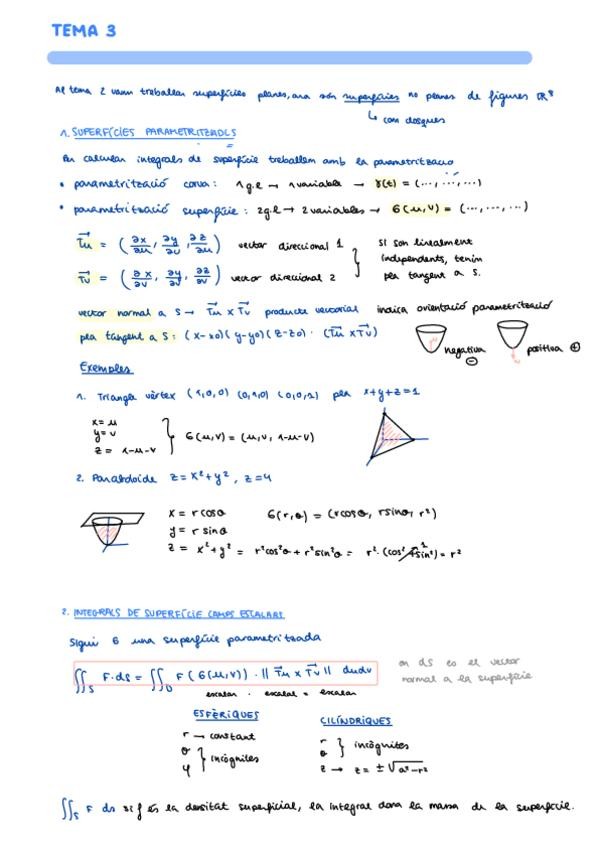 TEMA 3
Al tema 2 vam treballar superfícies planes, ara són superfícies no planes de figures ℝ³
↳ com dosques
1. SUPERFÍCIES PARAMETRITZADES
Per calcular integrals de superfície treballem amb la parametrització
• parametrització corva: 1 g.l → 1 variable → γ(t) = (..., ..., ...)
• parametrització superfície: 2 g.l → 2 variables → σ(u,v) = (..., ..., ...)
Tu = (∂x/∂u, ∂y/∂u, ∂z/∂u) vector direccional 1
Tv = (∂x/∂v, ∂y/∂v, ∂z/∂v) vector direccional 2
si son linealment
independents, tenim
pla tangent a S.
vector normal a S → Tu x Tv producte vectorial indica orientació parametrització
pla tangent a S: (x-x0)(y-y0)(z-z0) · (Tu x Tv)
negativa ⊖
positiva ⊕
Exemples
1. Triangle vèrtex (1,0,0) (0,1,0) (0,0,1) pla x+y+z=1
x = u
y = v
z = 1-u-v
σ(u,v) = (u,v, 1-u-v)
2. Paraboloide z = x²+y², z=4
x = r cosθ σ(r,θ) = (r cosθ, r sinθ, r²)
y = r sinθ
z = x²+y² = r²cos²θ + r²sin²θ = r²·(cos²+sin²) = r²
1
2. INTEGRALS DE SUPERFÍCIE CAMPS ESCALARS
Sigui σ una superfície parametritzada
∬S F·ds = ∬D F(σ(u,v)) · || Tu x Tv || dudv
on ds es el vector
normal a la superfície
escalar · escalar = escalar
ESFÈRIQUES
r → constant
θ
φ
incògnites
CILÍNDRIQUES
r
θ
incògnites
z → z = ±√a²-r²
∬S F ds si f és la densitat superficial, la integral dona la massa de la superfície.